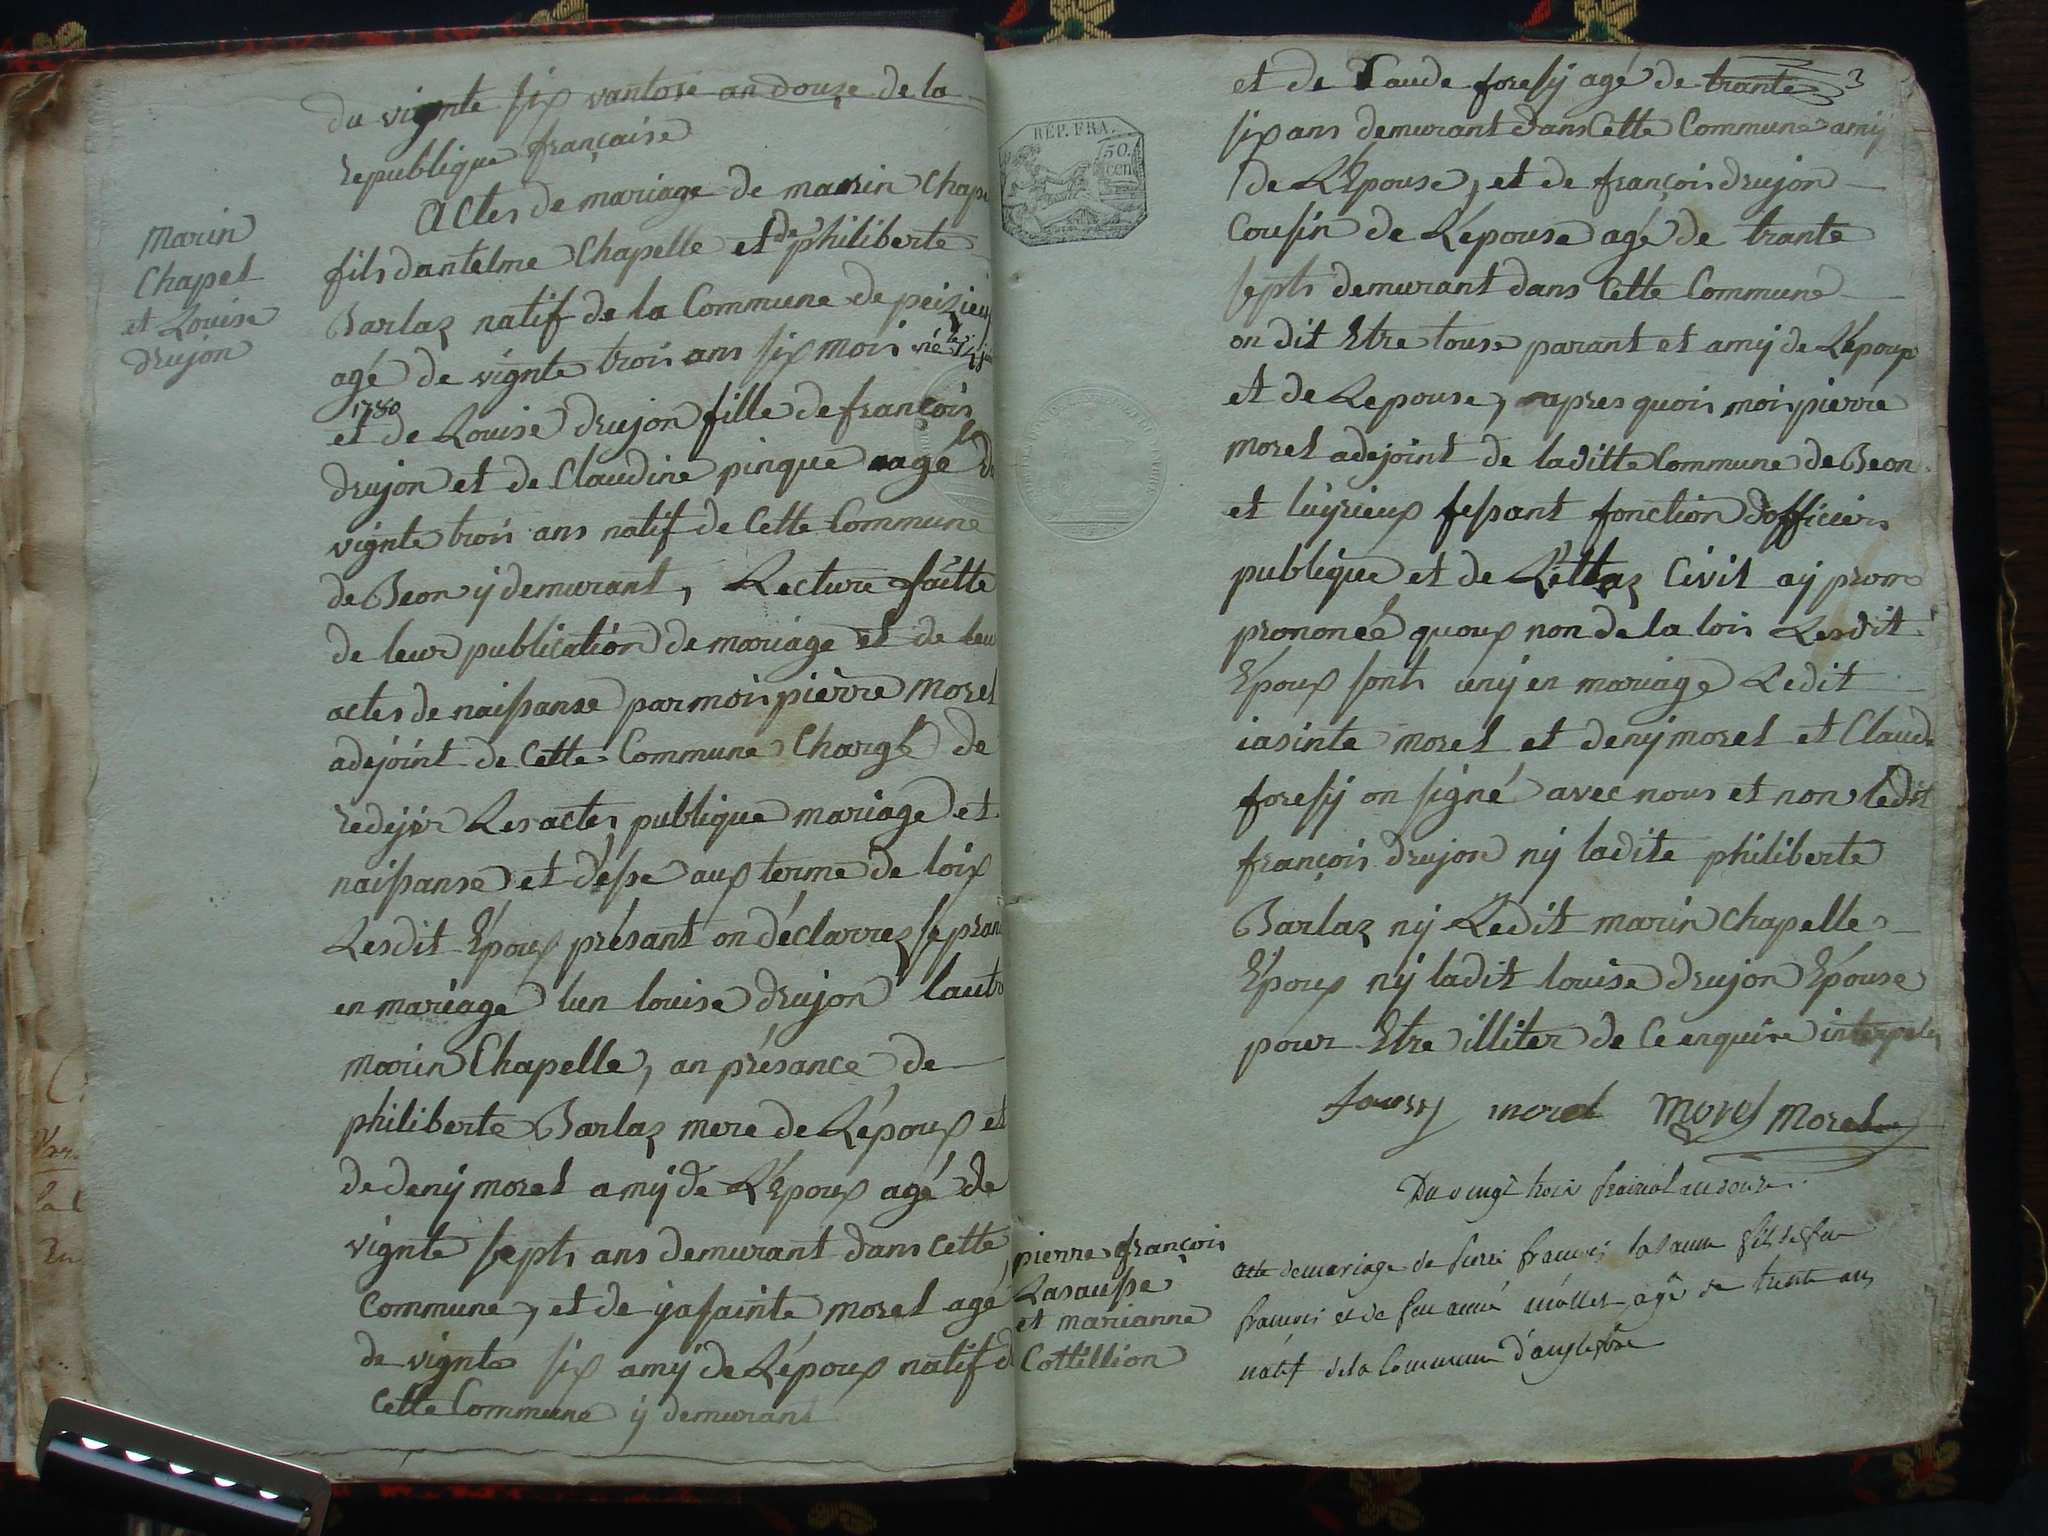 du vignte six vantose an douze de la
republique française
Marin
Chapel
et Louise
drujon
Actes de mariage de marin chape
fils dantelme Chapelle et de philiberte
Barlaz natif de la Commune de peizieu
agé de vignte trois ans six mois né le
1780
et de Louise drujon fille de françois
drujon et de Claudine pinque agé de
vignte trois ans natif de Cette Commune
de Beon ÿ demurant, Lecture faitte
de leur publication de mariage et de leur
actes de naissanse par mois pierre Morel
adejoint de Cette Commune Chargé de
redejer Les actes publique mariage et
naissanse et désse aux terme de loix
Lesdit Époux présant on déclarrez se pran
en mariage lun louise drujon lautre
marin Chapelle, an présance de
philiberte Barlaz mere de Lépoux et
de denÿ morel amÿ de L'Epoux agé de
vignte septs ans demurant dans cette
Commune, et de ÿasainte morel agé
de vignte six amÿ de Lépoux natif de
Cette Commune ÿ demurant
3
REP. FRA.
50.
cen
et de Laude foressÿ agé de trante
six ans demurant dans Cette Commune amÿ
de L'Epouse, et de françois drujon
Cousin de Lépouse agé de trante
septs demurant dans Cette Commune
on dit Etre touse parant et amÿ de L'époux
et de Lepouse, apres quois mois pierre
morel adejoint de laditte Commune de Beon
et luÿrieux fessant fonction dofficiers
publique et de L'éttaz Civil aÿ prom
prononcé quoux non de la lois Lesdit
Époux sonts unÿ en mariage Ledit
iasinte morel et denÿ morel et Claude
foressÿ on signé avec nous et non ledit
françois drujon nÿ ladite philiberte
Barlaz nÿ Ledit marin chapelle
Époux nÿ ladit louise drujon Épouse
pour Etre illiter de Ce enquire interpeles
morel morel Morel
Du vingt trois prairial an douze.
pierre françois
Lasausse
et marianne
Cottillion
acte de mariage de pierre francois lasausse fils de feu
francois et de feu mollet agé de trente ans
natif de la Commune d'anglefort